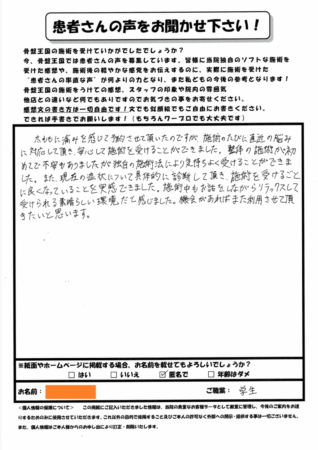 患者さんの声をお聞かせ下さい！
骨盤王国の施術を受けていかがでしたでしょうか？
今、骨盤王国では患者さんの声を募集しています。皆様に当院独自のソフトな施術を
受けた感想や、施術後の軽やかな感覚をお伝えするのに、実際に施術を受けた
“患者さんの率直な声”が何よりの力となり、また私どもの今後の参考となります！
骨盤王国の施術をうけての感想、スタッフの印象や院内の雰囲気
他店との違いなど何でもありですのでお気づきの事をお寄せください。
感想文の書き方は一切自由です！文でも似顔絵でもご自由にお書きください。
できれば手書きでお願いします！（もちろんワープロでも大丈夫です）
太ももに痛みを感じて予約させて頂いたのですが、施術のたびに直近の悩み
に対応して頂き、安心して施術を受けることができました。整体の施術が初
めてで不安もありましたが独自の施術法により気持ちよく受けることができま
した。また、現在の症状について具体的に診断して頂き、施術を受けるごと
に良くなっていることを実感できました。施術中もお話をしながらリラックスして
受けられる素晴らしい環境だと感じました。機会があればまた利用させて頂
きたいと思います。
※紙面やホームページに掲載する場合、お名前を載せてもよろしいでしょうか？
□はい　□いいえ　☑匿名で　□年齢はダメ
お名前：　ご職業：学生
＜個人情報の保護について＞　この用紙にご記入いただきました情報は、当院の貴重なお客様データとして厳重に管理し、今後のご案内をお送
りするためのみに使用させていただきます。これ以外の目的で使用することや及びご本人の許可なく外部への開示・提供する事は一切ございません。
また、個人情報はご本人様からのお申し出により訂正・削除いたします。